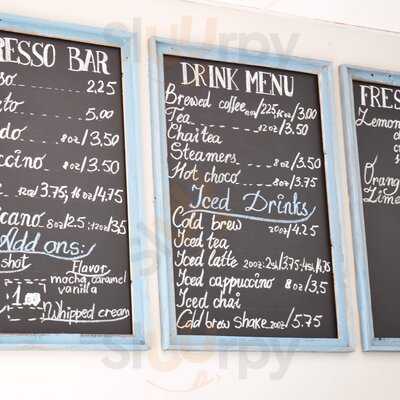 RESSO BAR
2.25
5.00
8oz/3.50
ccino 8oz/3.50
12oz/3.75, 16oz/4.75
icano 8oz/2.5 12oz/3.5
Add ons:
shot Flavor
mocha, caramel
vanilla
Whipped cream
DRINK MENU
Brewed coffee 2.25, 16oz/3.00
Tea 12oz/3.50
Chai tea
Steamers 8oz/3.50
Hot choco 8oz/3.75
Iced Drinks
Cold brew 20oz/4.25
Iced tea
Iced latte
Iced cappuccino 8oz/3.5
Iced chai
Cold brew shake 20oz/5.75
FRES
Lemon
Orang
Lime
Sluurpy
Sluurpy